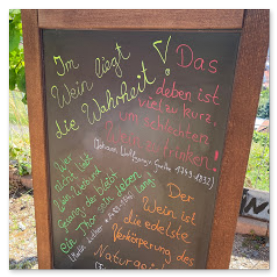 Im
Wein liegt
die Wahrheit!
Das
Leben ist
viel zu kurz,
um schlechten
Wein zu trinken!
(Johann Wolfgang Goethe 1749-1832)
Wer
nicht liebt
Wein, Weib und
Gesang, der bleibt
ein Thor sein Leben
lang!
Der
Wein ist
die edelste
Verkörperung des